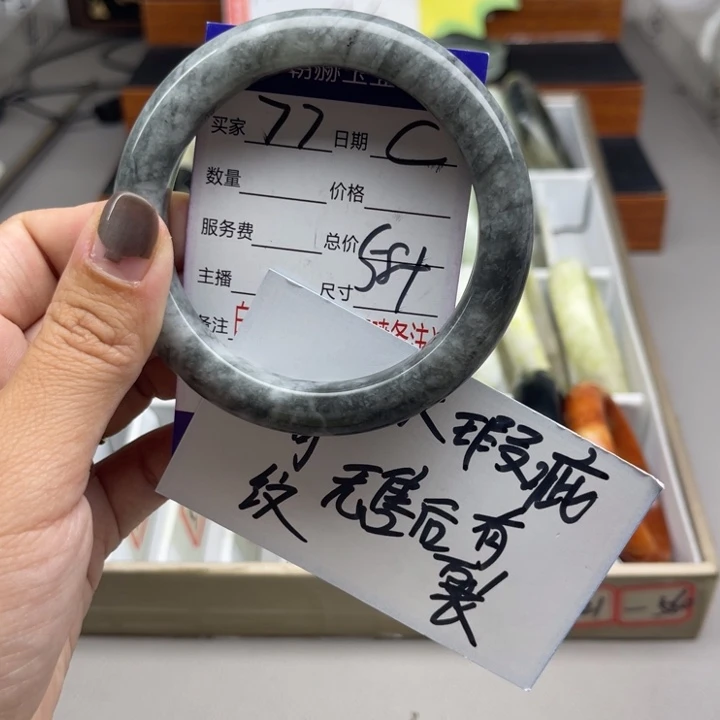 买家 77 日期 C
数量 价格
服务费 总价
主播 尺寸 584
备注
瑕疵
纹 无售后 有
裂